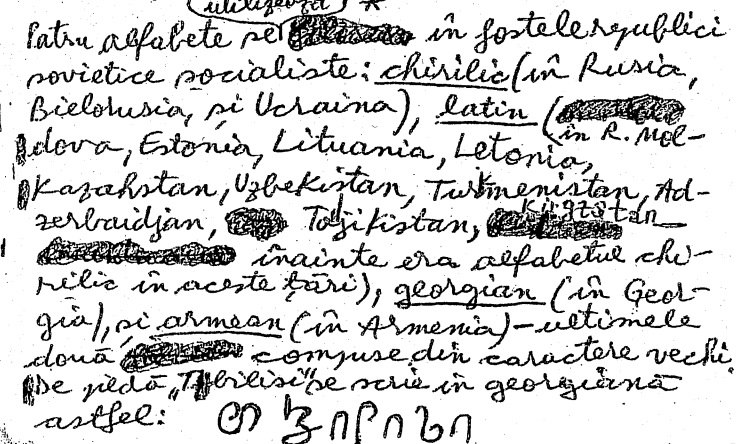 utilizează *
Patru alfabete se în fostele republici
sovietice socialiste: chirilic (în Rusia,
Bielorusia, și Ucraina), latin (
în R. Mol-
dova, Estonia, Lituania, Letonia,
Kazahstan, Uzbekistan, Turkmenistan, Ad-
zerbaidjan, Tojikistan, Kîrgîstan
înainte era alfabetul chi-
rilic în aceste țări), georgian (în Geor-
gia), și armean (în Armenia) – ultimele
două compuse din caractere vechi.
De pildă, „Tbilisi" se scrie în georgiană
astfel: